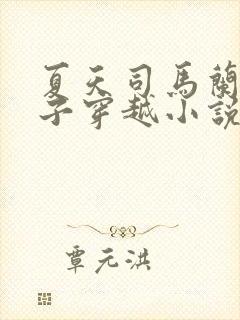 夏天司馬蘭
子穿越小說
覃元洪